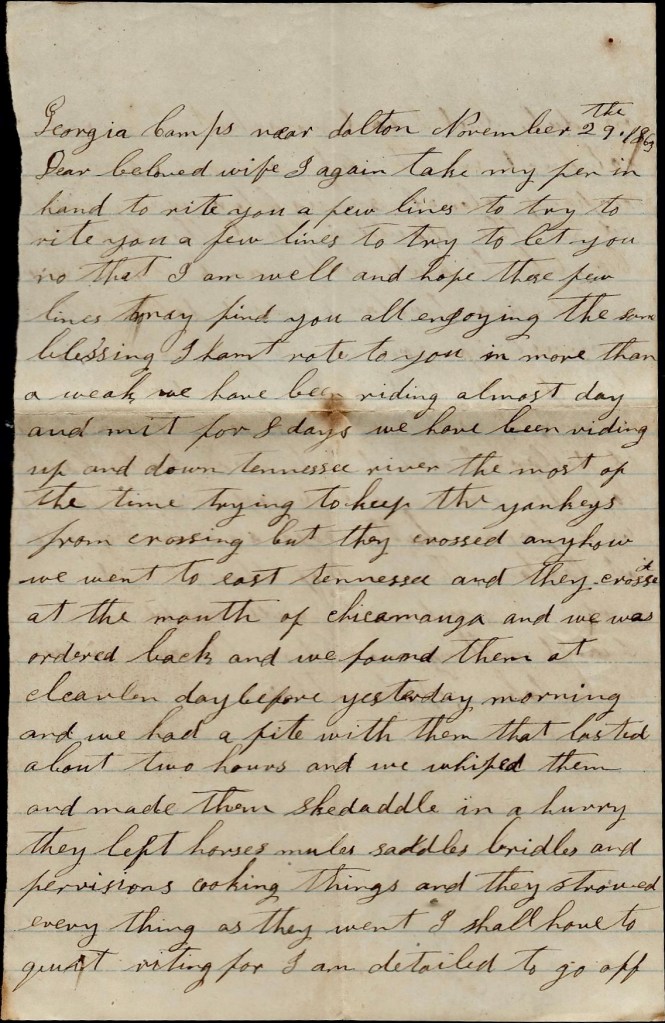 Georgia Camps near dalton November the 29. 1863
Dear beloved wife I again take my pen in
hand to rite you a few lines to try to
rite you a few lines to try to let you
no that I am well and hope these few
lines may find you all engoying the same
blessing I hant rote to you in more than
a weak we have been riding almost day
and nit for 8 days we have been riding
up and down tennessee river the most of
the time trying to keep the yankeys
from crossing but they crossed anyhow
we went to east tennessee and they crosst
at the mouth of chicamauga and we was
ordered back and we found them at
cleavlen day before yesterday morning
and we had a fite with them that lasted
about two hours and we whiped them
and made them skedaddle in a hurry
they left horses mules saddles bridles and
pervisions cooking things and they strowed
every thing as they went I shall have to
quit riting for I am detailed to go off